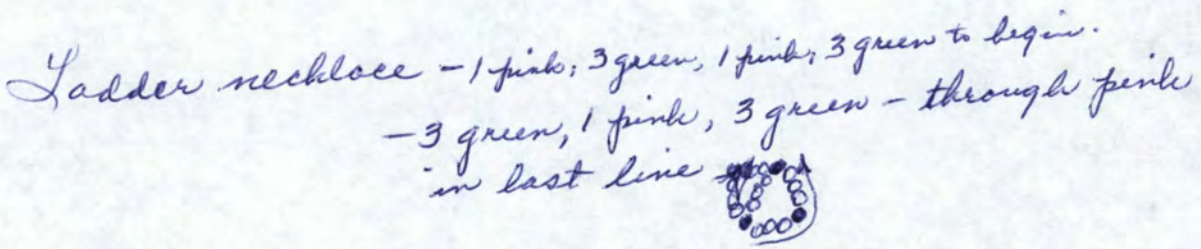 Ladder necklace - 1 pink; 3 green, 1 pink; 3 green to begin.
- 3 green, 1 pink, 3 green - through pink
in last line